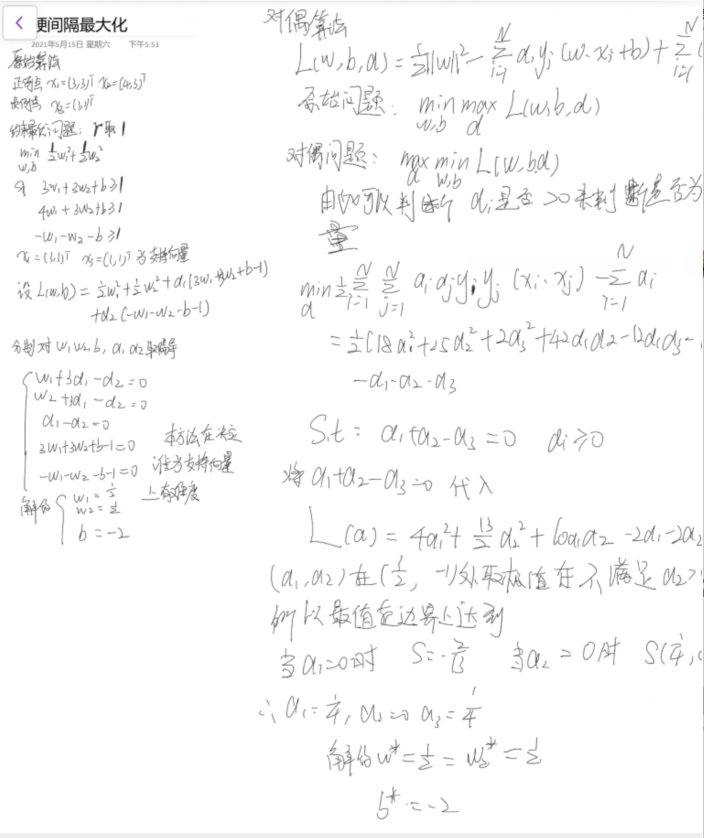 硬间隔最大化
2021年5月15日 星期六 下午5:53
原始算法
正例点 x₁=(3,3)ᵀ x₂=(4,3)ᵀ
负例点 x₃=(1,1)ᵀ
约束最优问题: r取1
min ½w₁²+½w₂²
w,b
3w₁+3w₂+b≥1
4w₁+3w₂+b≥1
-w₁-w₂-b≥1
x₁=(3,3)ᵀ x₃=(1,1)ᵀ 为支持向量
设 L(w,b) = ½w₁²+½w₂²+α₁(3w₁+3w₂+b-1)
+α₂(-w₁-w₂-b-1)
分别对 w₁ w₂ b, α₁ α₂ 取偏导
w₁+3α₁-α₂=0
w₂+3α₁-α₂=0
α₁-α₂=0
3w₁+3w₂+b-1=0
-w₁-w₂-b-1=0
本方法在决定
谁为支持向量
上有难度
解得 w₁=½
w₂=½
b=-2
对偶算法
L(w,b,α)=½||w||²-Σαᵢyᵢ(w·xᵢ+b)+Σ
原始问题: min max L(w,b,α)
w,b α
对偶问题: max min L(w,b,α)
α w,b
由 可以判断 αᵢ是否>0来判断是否为
量
min ½ΣΣαᵢαⱼyᵢyⱼ(xᵢ·xⱼ)-Σαᵢ
α
=½(18α₁²+25α₂²+2α₃²+42α₁α₂-12α₁α₃-
-α₁-α₂-α₃
S.t: α₁+α₂-α₃=0 αᵢ≥0
将α₁+α₂-α₃=0 代入
L(α)=4α₁²+13/2α₂²+10α₁α₂-2α₁-2α₂
(α₁,α₂)在( ,-1)处取极值在不满足α₂>
所以最值在边界上达到
当α₁=0时 S=-2/13 当α₂=0时 S(¼,
∴α₁=¼, α₂=0 α₃=¼
解得w₁*=½=w₂*=½
b*=-2